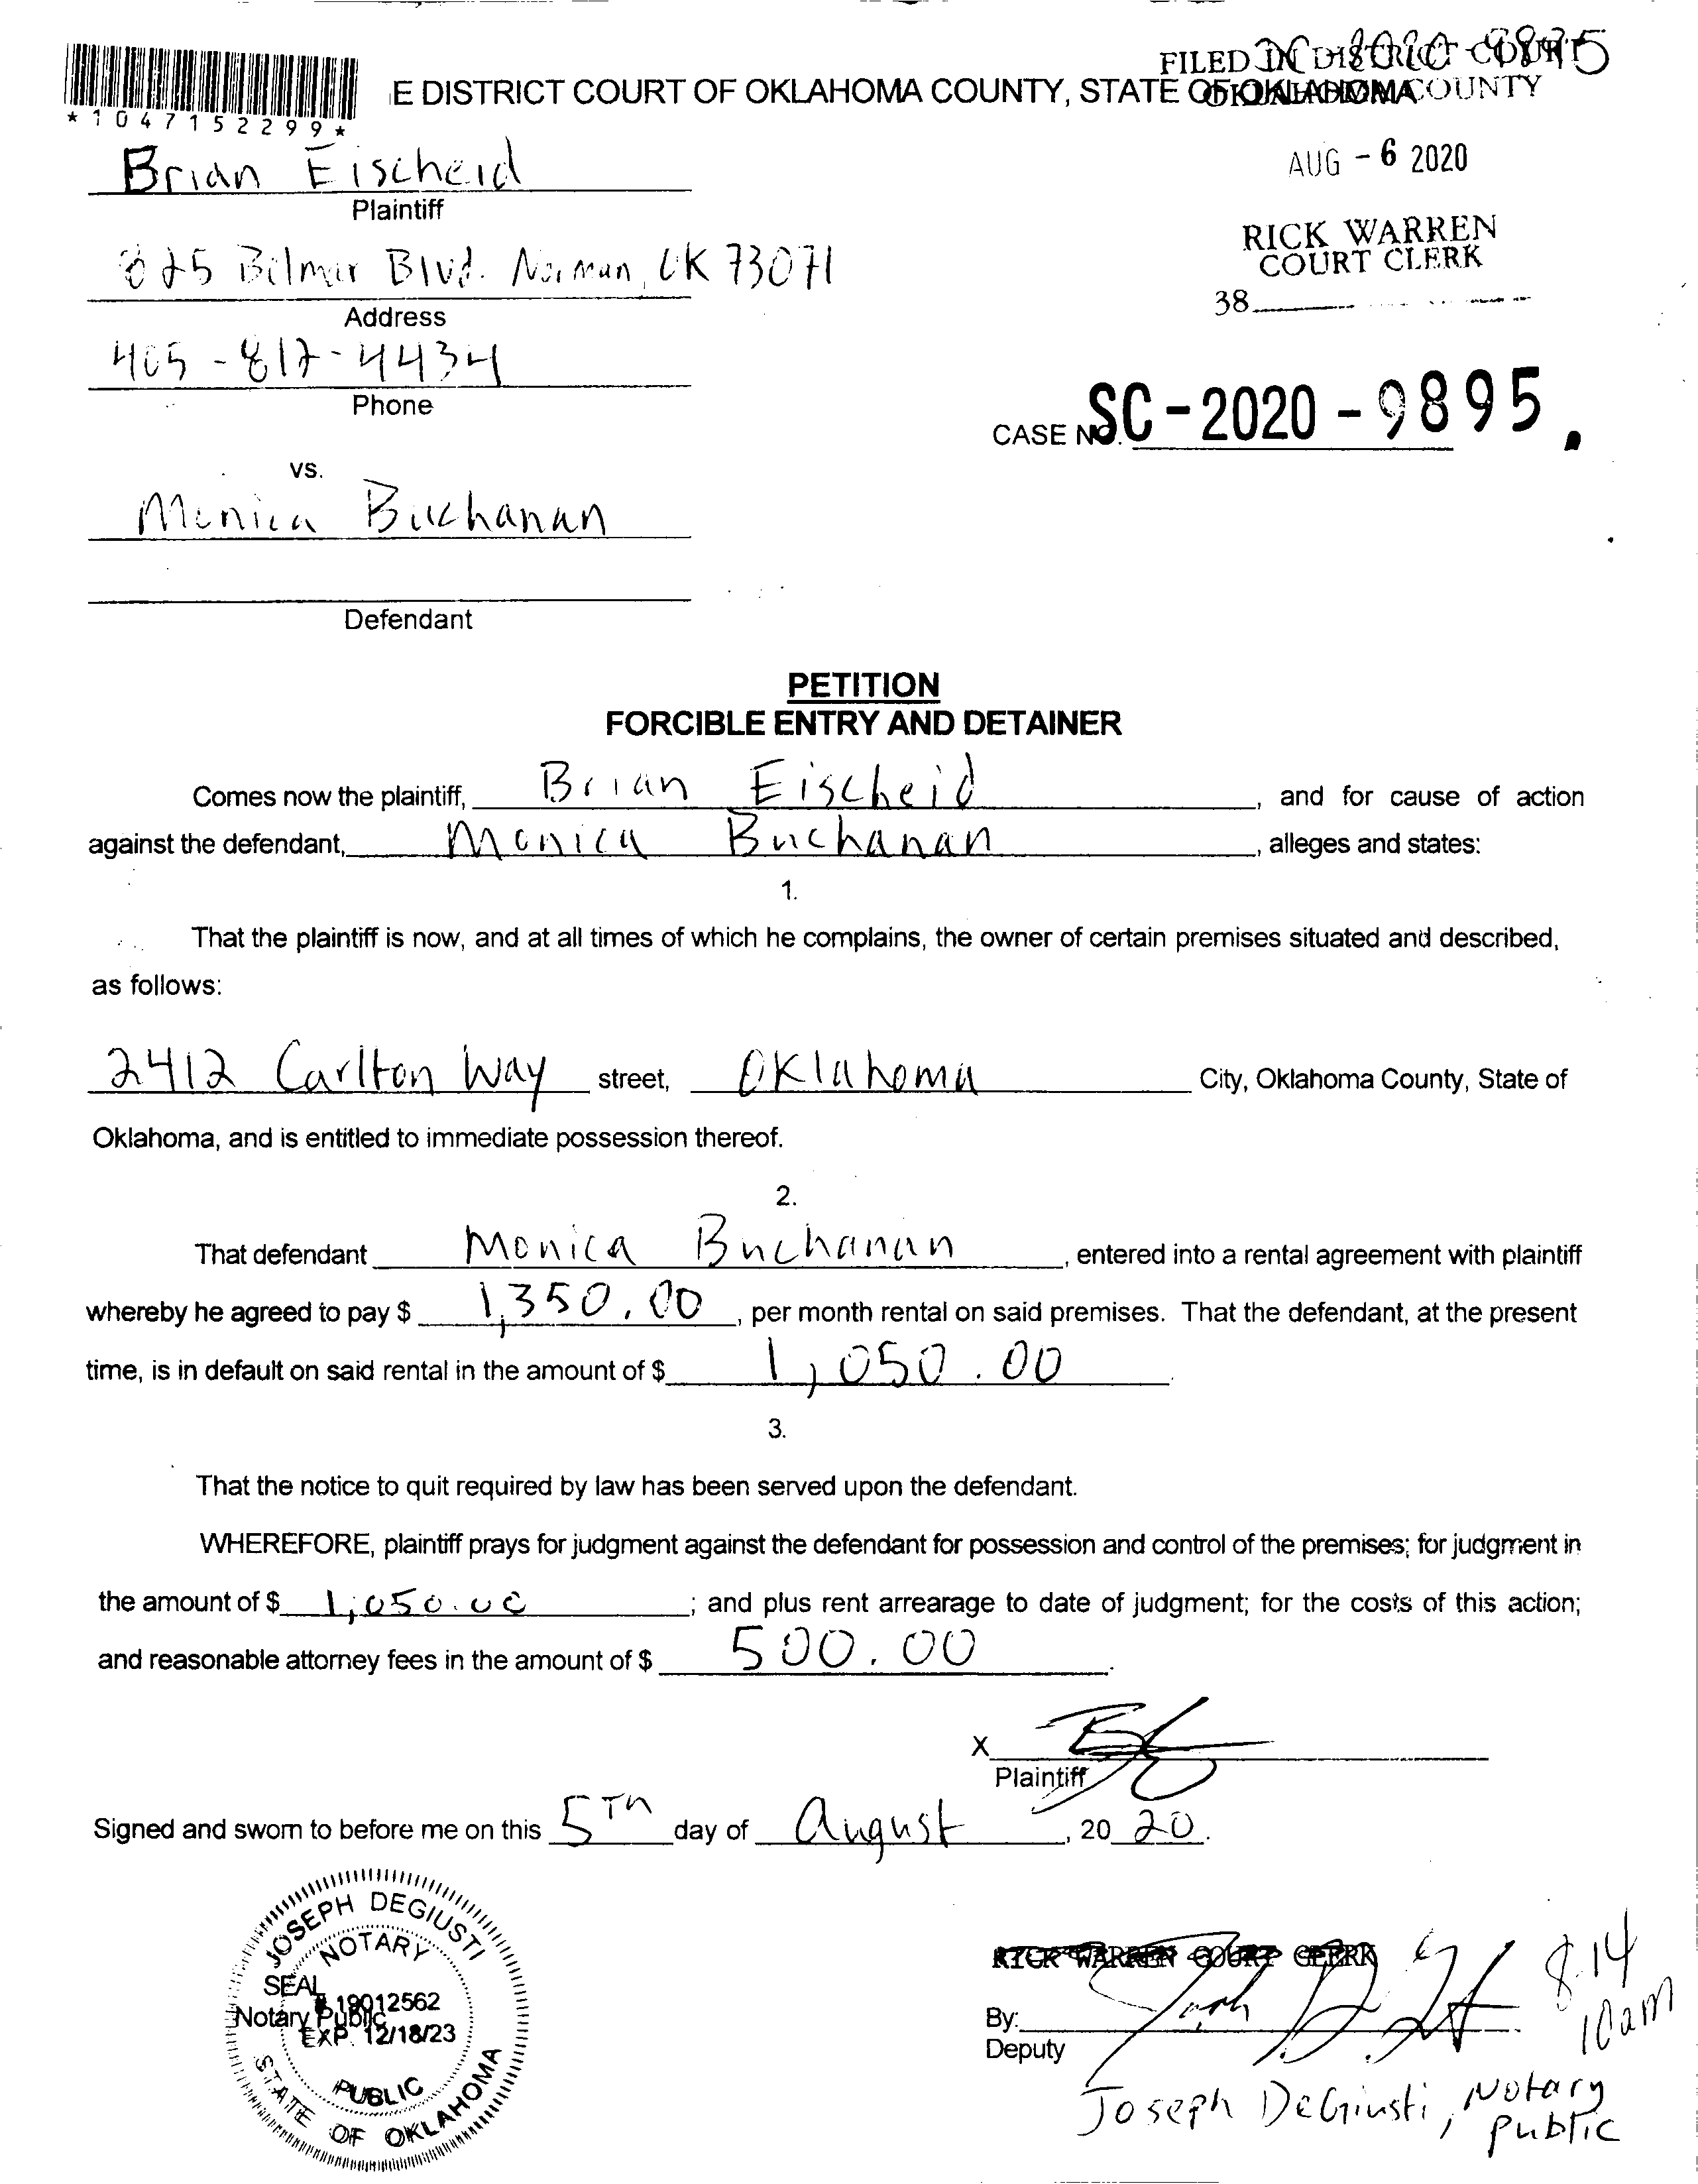 FILED IN DISTRICT COURT
OKLAHOMA COUNTY
E DISTRICT COURT OF OKLAHOMA COUNTY, STATE OF OKLAHOMA
*1047152299*
AUG - 6 2020
RICK WARREN
COURT CLERK
38
Brian Eischeid
Plaintiff
825 Bilmar Blvd. Norman, OK 73071
Address
405-817-4434
Phone
CASE NO. SC-2020-9895
vs.
Monica Buchanan
Defendant
PETITION
FORCIBLE ENTRY AND DETAINER
Comes now the plaintiff, Brian Eischeid, and for cause of action
against the defendant, Monica Buchanan, alleges and states:
1.
That the plaintiff is now, and at all times of which he complains, the owner of certain premises situated and described,
as follows:
2412 Carlton Way street, Oklahoma City, Oklahoma County, State of
Oklahoma, and is entitled to immediate possession thereof.
2.
That defendant Monica Buchanan, entered into a rental agreement with plaintiff
whereby he agreed to pay $ 1,350.00, per month rental on said premises. That the defendant, at the present
time, is in default on said rental in the amount of $ 1,050.00.
3.
That the notice to quit required by law has been served upon the defendant.
WHEREFORE, plaintiff prays for judgment against the defendant for possession and control of the premises; for judgment in
the amount of $ 1,050.00; and plus rent arrearage to date of judgment; for the costs of this action;
and reasonable attorney fees in the amount of $ 500.00.
X
Plaintiff
Signed and sworn to before me on this 5Th day of August, 2020.
JOSEPH DEGIUSTI
NOTARY
SEAL
# 19012562
Notary Public
EXP. 12/18/23
PUBLIC
STATE OF OKLAHOMA
RICK WARREN COURT CLERK
By:
Deputy
8-14
10am
Joseph DeGiusti, Notary
Public